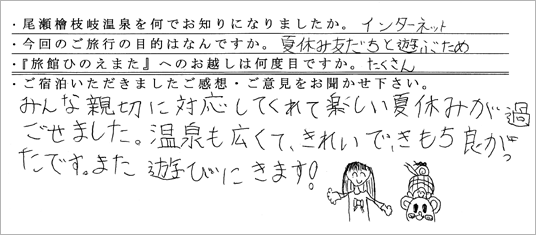 ・尾瀬檜枝岐温泉を何でお知りになりましたか。インターネット
・今回のご旅行の目的はなんですか。夏休み友だちと遊ぶため
・『旅館ひのえまた』へのお越しは何度目ですか。たくさん
・ご宿泊いただきましたご感想・ご意見をお聞かせ下さい。
みんな親切に対応してくれて楽しい夏休みが過
ごせました。温泉も広くて、きれいで、きもち良かっ
たです。また遊びにきます!